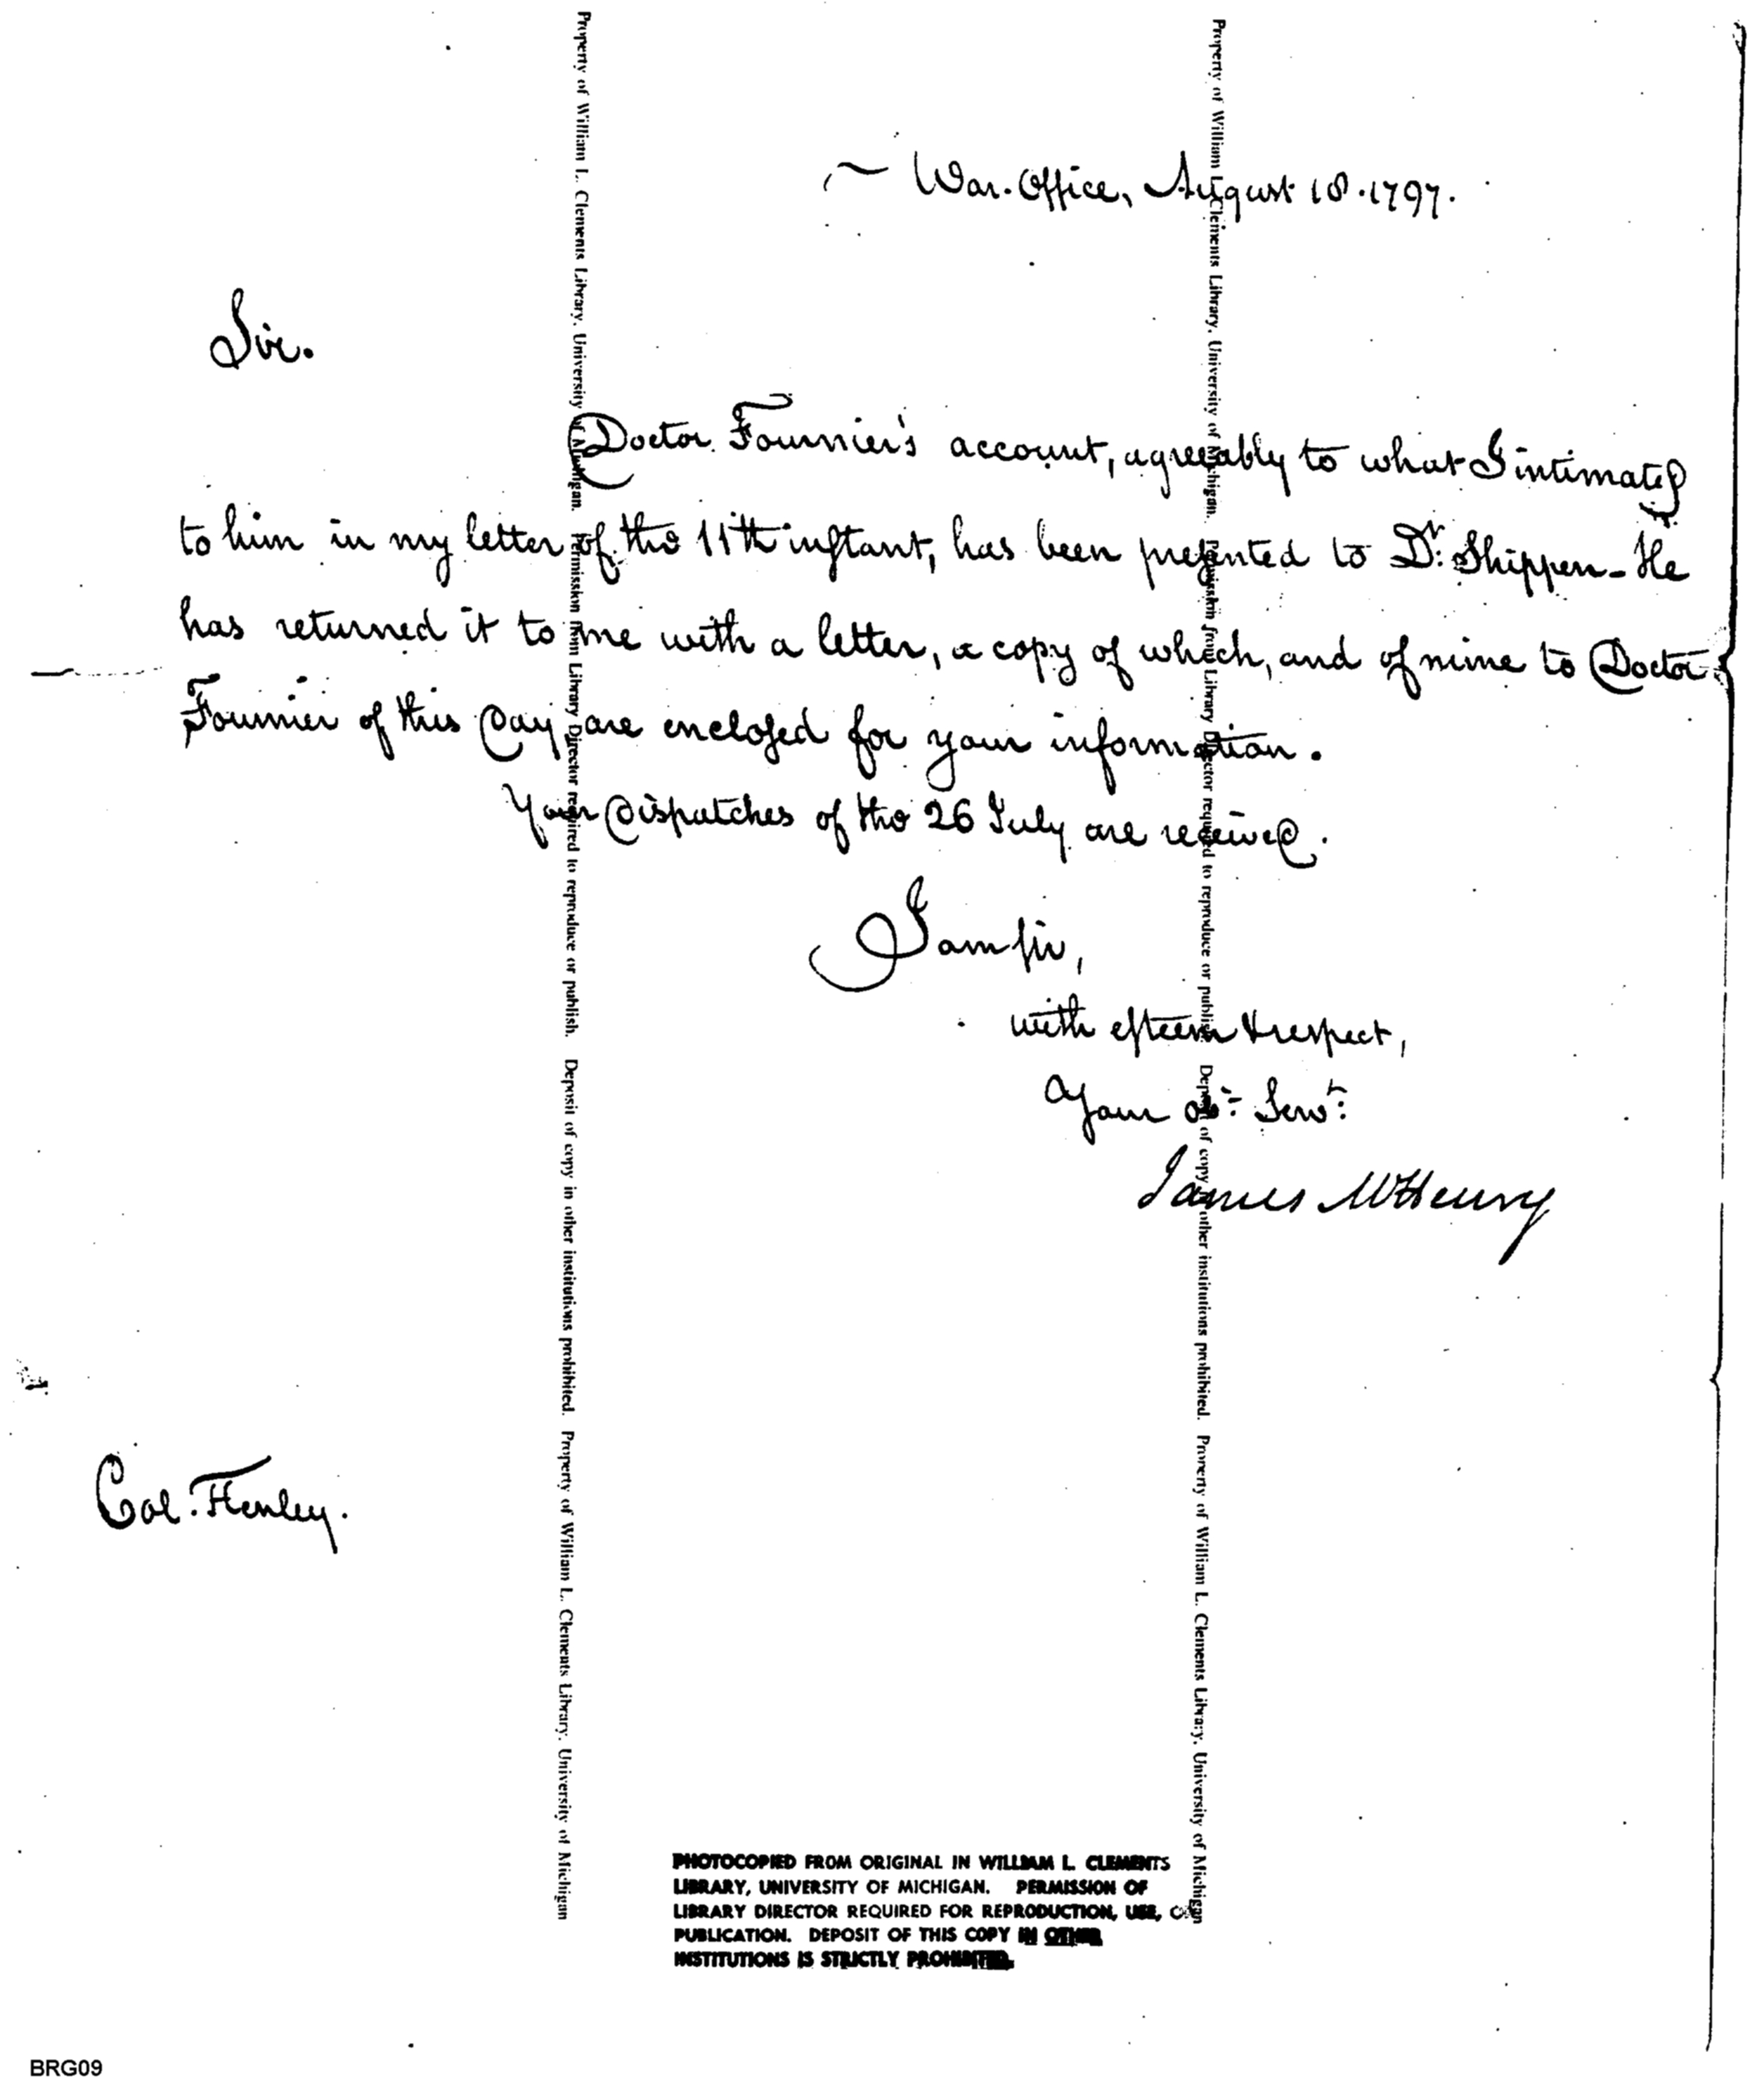 War Office, August 18. 1797.
Sir.
Doctor Fournier's account, agreeably to what I intimated
to him in my letter of the 11th instant, has been presented to Dr. Shippen - He
has returned it to me with a letter, a copy of which, and of mine to Doctor
Fournier of this day are enclosed for your information.
Your dispatches of the 26 July are received.
I am sir,
with esteem & respect,
Your obt. Servt.
James McHenry
Col. Henley.
Property of William L. Clements Library, University of Michigan. Permission from Library Director required to reproduce or publish. Deposit of copy in other institutions prohibited. Property of William L. Clements Library, University of Michigan
Property of William L. Clements Library, University of Michigan. Permission from Library Director required to reproduce or publish. Deposit of copy in other institutions prohibited. Property of William L. Clements Library, University of Michigan
PHOTOCOPIED FROM ORIGINAL IN WILLIAM L. CLEMENTS
LIBRARY, UNIVERSITY OF MICHIGAN. PERMISSION OF
LIBRARY DIRECTOR REQUIRED FOR REPRODUCTION, USE, OR
PUBLICATION. DEPOSIT OF THIS COPY IN OTHER
INSTITUTIONS IS STRICTLY PROHIBITED.
BRG09